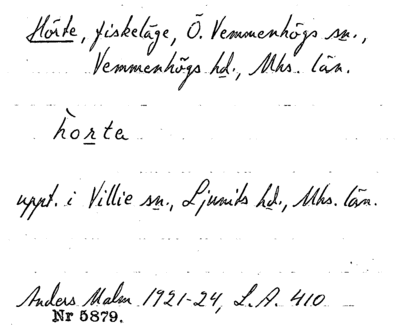 Hörte, fiskeläge, Ö. Vemmenhögs sn.,
Vemmenhögs hd., Mhs. län.
ho̱rta
uppt. i Villie sn., Ljunits hd., Mhs. län.
Anders Malm 1921-24, L.A. 410
Nr 5879.